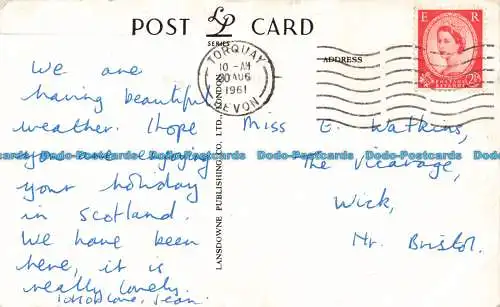 POST CARD
LP
SERIES
TORQUAY
10 - AM
20 AUG
1961
DEVON
ADDRESS
E R
POSTAGE REVENUE
2½D
We are
having beautiful
weather. I hope
you are enjoying
your holiday
in Scotland.
We have been
here, it is
really lovely.
love, Jean.
LANSDOWNE PUBLISHING CO., LTD., LONDON
Miss E. Watkins,
The Vicarage,
Wick,
Nr. Bristol.
Dodo-Postcards Dodo-Postcards Dodo-Postcards Dodo-Postcards Dodo-Postcards